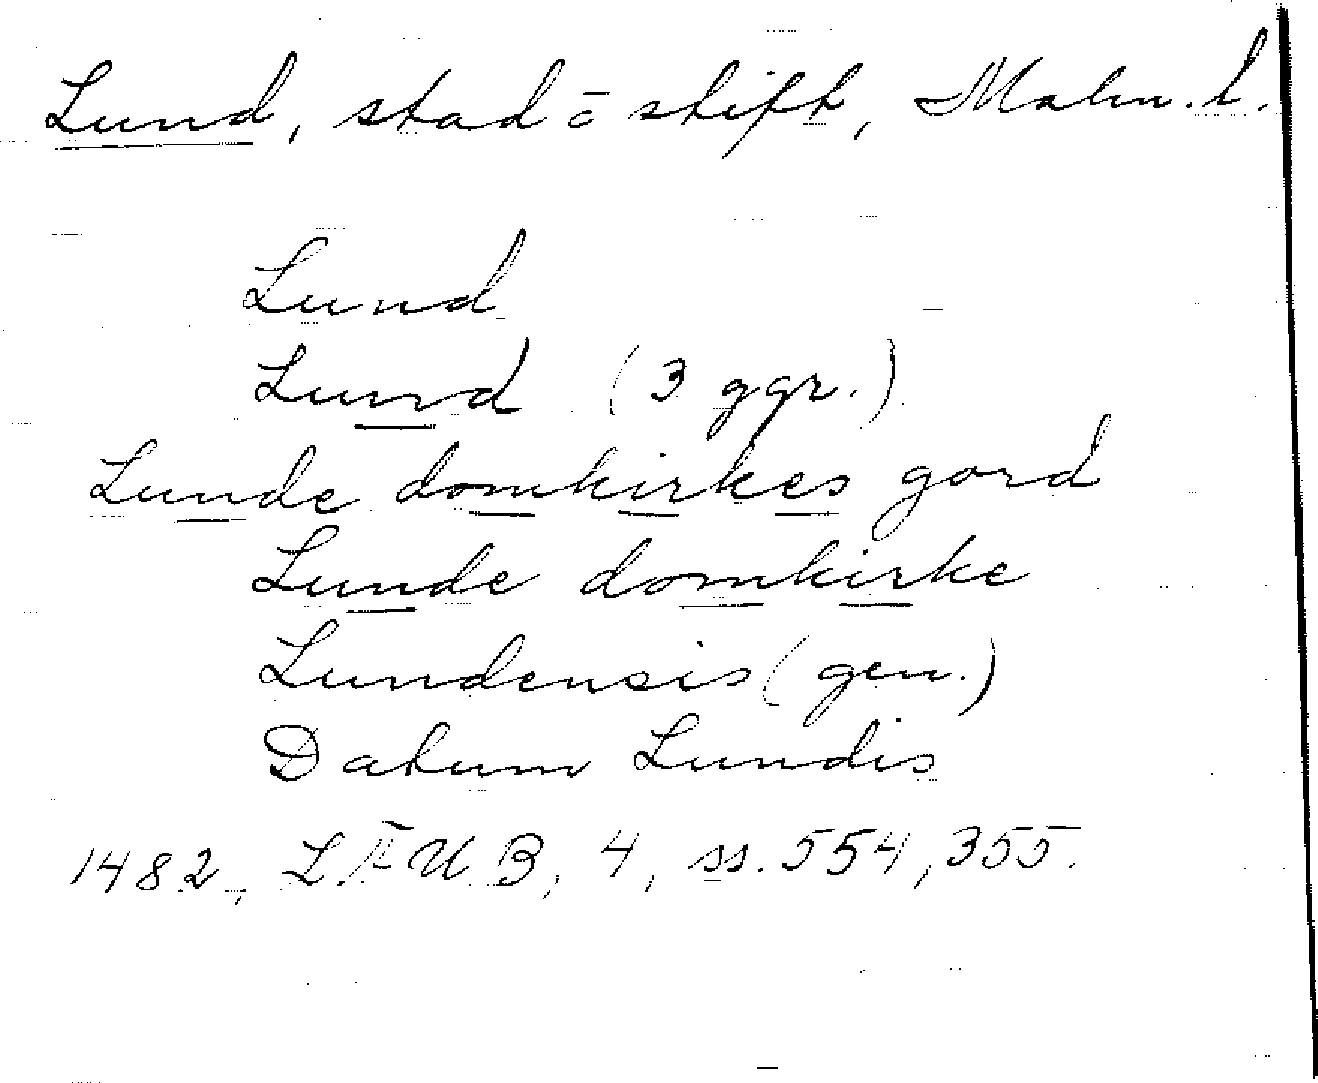 Lund, stad o stift, Malm. l.
Lund
Lund (3 ggr.)
Lunde domkirkes gord
Lunde domkirke
Lundensis (gen.)
Datum Lundis
1482, LÄUB, 4, ss. 554, 355.